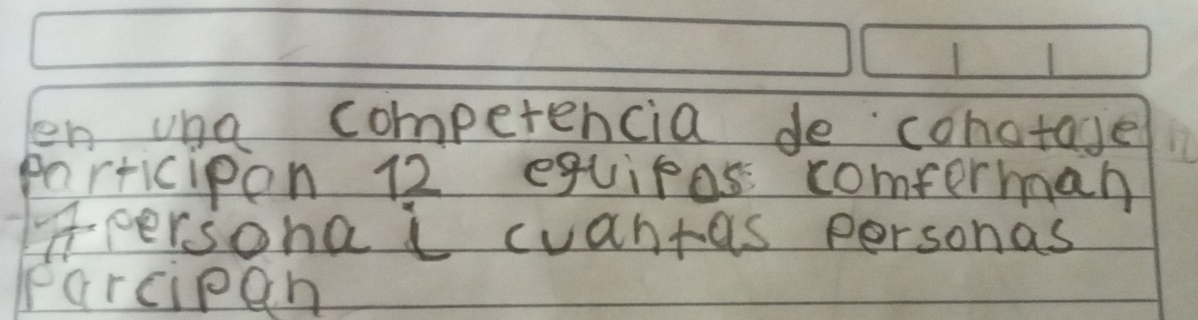 en una competencia de conotaje
participan 12 equipos comferman
7 persona i cuantas personas
parcipan